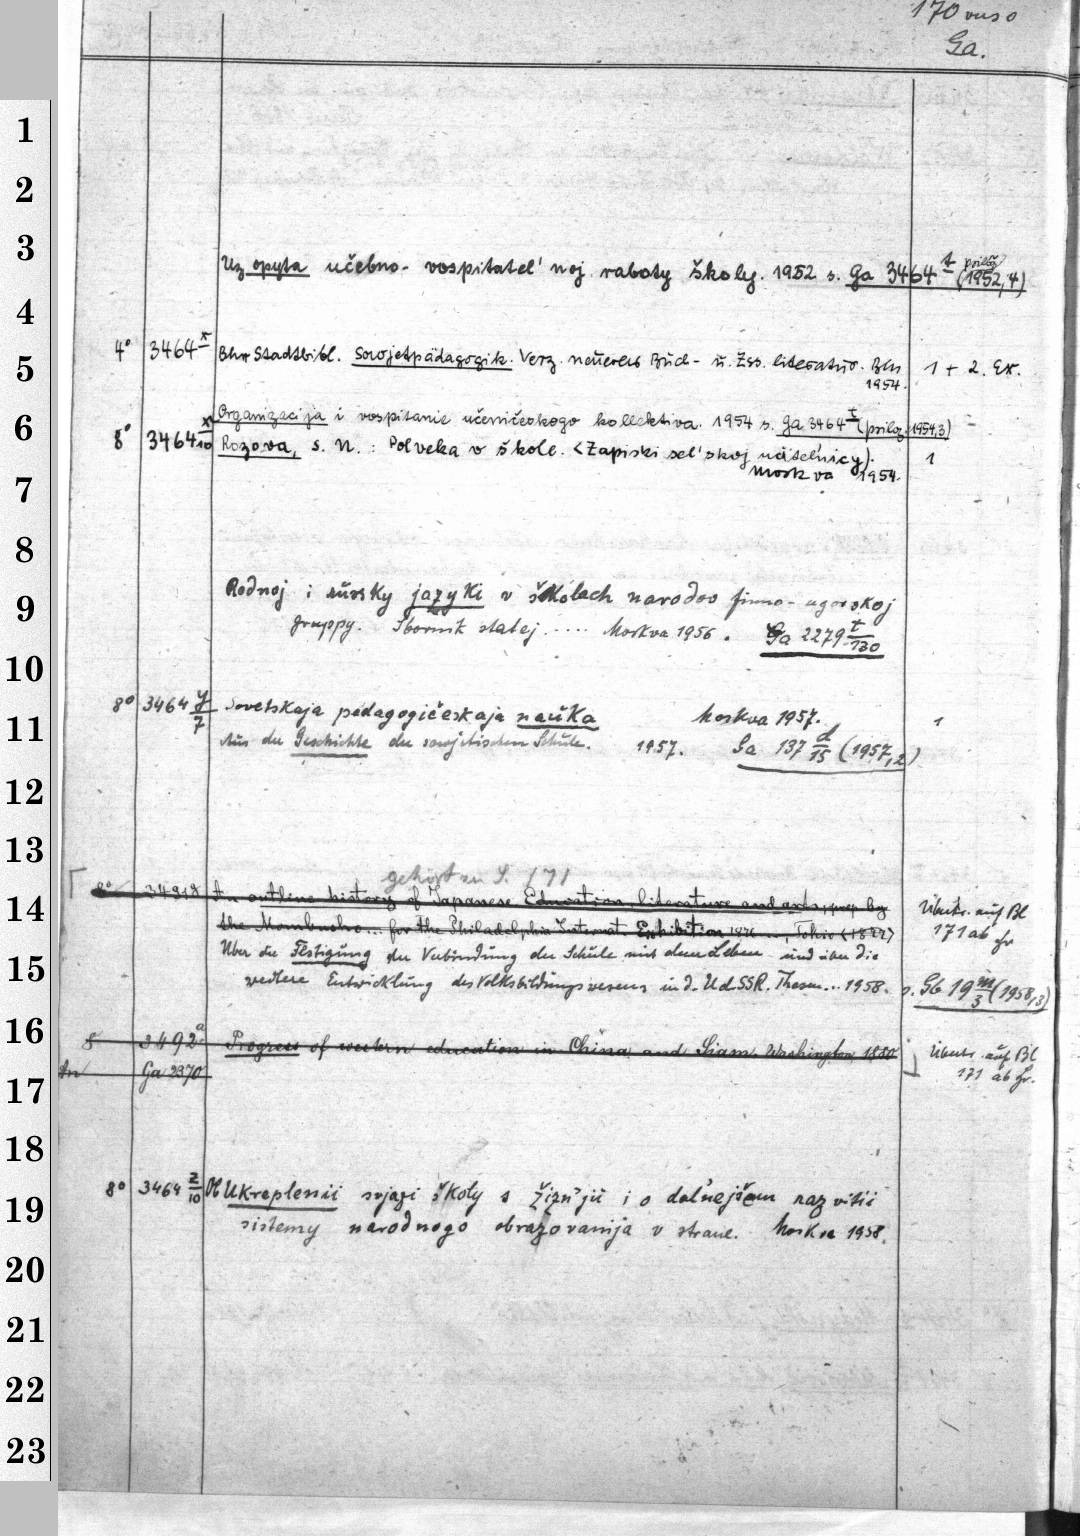 170 verso
Ga.
1
2
3
Uz opyta učebno- vospitatel'noj raboty školy. 1952 s. Ga 3464 t (prilož 1952,4)
4
4° 3464 x Bln Stadtbibl. Sowjetpädagogik. Verz. neueres Buch- u. Zss. literatur. Bln 1 + 2. Ex.
5
1954.
Organizacija i vospitanie učeničeskogo kollektiva. 1954 s. Ga 3464 t (prilož 1954,3)
6
8° 3464 x/10 Rozova, S. N.: Polveka v škole. <Zapiski sel'skoj učitelnicy>. 1
Moskva 1954.
7
8
Rodnoj i russky jazyki v školach narodov finno-ugorskoj
9
gruppy. Sbornik statej ..... Moskva 1956. Ga 2279 t/130
10
8° 3464 y/7 Sovetskaja pedagogičeskaja nauka Moskva 1957. 1
11
Aus der Geschichte der sowjetischen Schule. 1957. Ga 137 d/15 (1957,2)
12
13
gehört zu S. 171
8° 3491 An outline history of Japanese Education, literature and arts, prep. by Übertr. auf Bl
14
the Mombusho... for the Philadelphia Internat. Exhibition 1876 ..., Tokio (1877) 171 ab
Über die Festigung der Verbindung der Schule mit dem Leben und über die
15
weitere Entwicklung des Volksbildungswesens in d. UdSSR. Thesen... 1958. s. Gb 19 m/3 (1958,3)
16
8 3492 a Progress of western education in China and Siam. Washington 1880 Übertr. auf Bl
Ga 2370 171 ab
17
18
8° 3464 z/10 Ob Ukreplenii svjazi školy s žizn'ju i o dal'nejšem razvitii
19
sistemy narodnogo obrazovanija v strane. Moskva 1958.
20
21
22
23